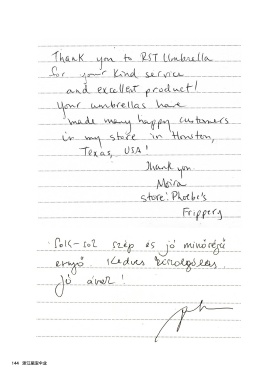 Thank you to RST Umbrella
for your kind service
and excellent product!
Your umbrellas have
made many happy customers
in my store in Houston,
Texas, USA!
Thank you
Moira
store: Phoebe's
Frippery
Sok-sok szép és jó minőségű
ernyő. Kedves kiszolgálás.
Jó árak!
144